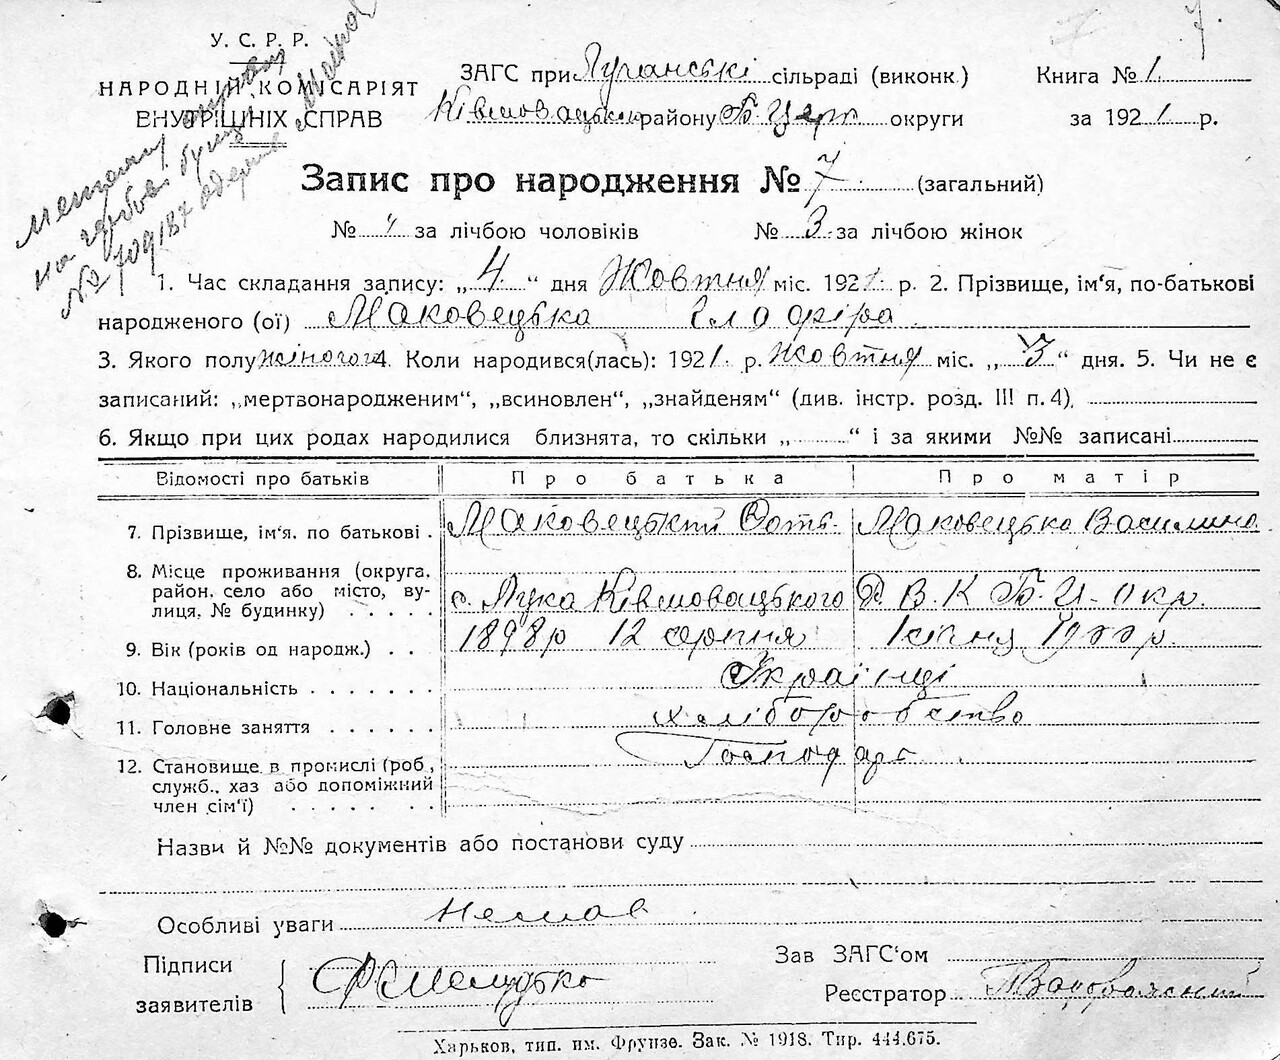 У. С. Р. Р.
НАРОДНІЙ КОМІСАРІЯТ
ВНУТРІШНІХ СПРАВ
ЗАГС при сільраді (виконк.)
району Б-Церк округи
Книга № 1
за 1921 р.
7.
Запис про народження № 7 (загальний)
№ за лічбою чоловіків № 3 за лічбою жінок
1. Час складання запису: „4“ дня Жовтня міс. 1921 р. 2. Прізвище, ім'я, по-батькові
народженого (ої) Маковецька Глафіра
3. Якого полу жіночого 4. Коли народився(лась): 1921 р. Жовтня міс. „3“ дня. 5. Чи не є
записаний: „мертвонародженим“, „всиновлен“, „знайденям“ (див. інстр. розд. III п. 4).
6. Якщо при цих родах народилися близнята, то скільки „ “ і за якими №№ записані
Відомості про батьків Про батька Про матір
7. Прізвище, ім'я, по батькові . Маковецький Маковецька Василина
8. Місце проживання (округа,
район, село або місто, ву-
лиця, № будинку) . . . . с. Лука Б-Ц-Окр.
9. Вік (років од народж.) . . 1898 р 12 серпня 1 січня 1900 р.
10. Національність . . . . . . . Українці
11. Головне заняття . . . . . . хліборобство
12. Становище в промислі (роб., Господарі
служб., хаз або допоміжний
член сім'ї) . . . . . . .
Назви й №№ документів або постанови суду
Особливі уваги Немає
Підписи
заявителів
Зав ЗАГС'ом
Реєстратор
Харьков, тип. им. Фрунзе. Зак. № 1918. Тир. 444.675.